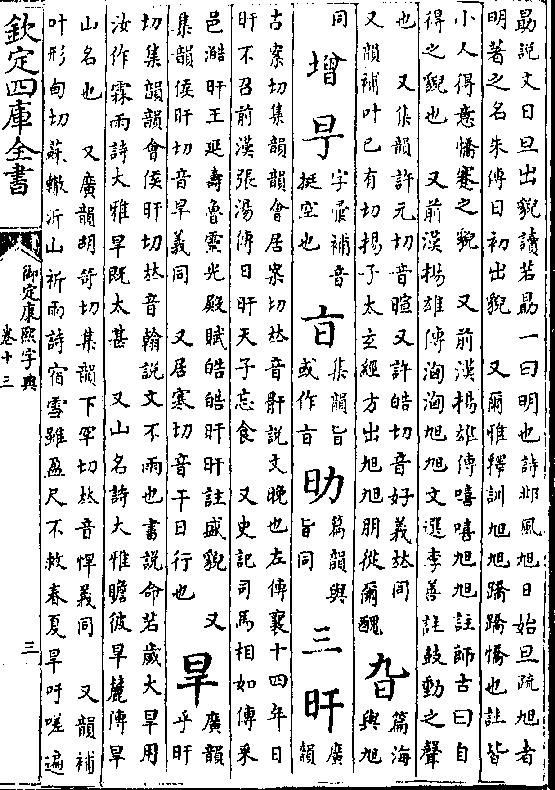 勗說文日旦出貌讀若勗一曰明也詩邶風旭日始旦疏旭者
明著之名朱傳日初出貌 又爾雅釋訓旭旭蹻蹻憍也註皆
小人得意憍蹇之貌 又前漢揚雄傳嘻嘻旭旭註師古曰自
得之貌也 又前漢揚雄傳洶洶旭旭文選李善註鼓動之聲
也 又集韻許元切音暄又許皓切音好義𠀤同
又韻補叶已有切揚子太玄經方出旭旭朋從爾醜
旮 篇海與旭
同 增 字彙補音挺空也 㫖 集韻旨或作㫖 篇韻與旨同 三 旰 廣韻
古案切集韻韻會居案切𠀤音骭說文晚也左傳襄十四年日
旰不召前漢張湯傳日旰天子忘食 又史記司馬相如傳采
色澔旰王延壽魯靈光殿賦皓皓旰旰註盛貌 又
集韻侯旰切音旱義同 又居寒切音干日行也
旱 廣韻乎旰
切集韻韻會侯旰切𠀤音翰說文不雨也書說命若歲大旱用
汝作霖雨詩大雅旱既太甚 又山名詩大雅瞻彼旱麓傳旱
山名也 又廣韻胡笴切集韻下罕切𠀤音悍義同 又韻補
叶形甸切蘇轍沂山祈雨詩宿雪雖盈尺不救春夏旱吁嗟遍
欽定四庫全書
御定康熙字典
卷十三
三